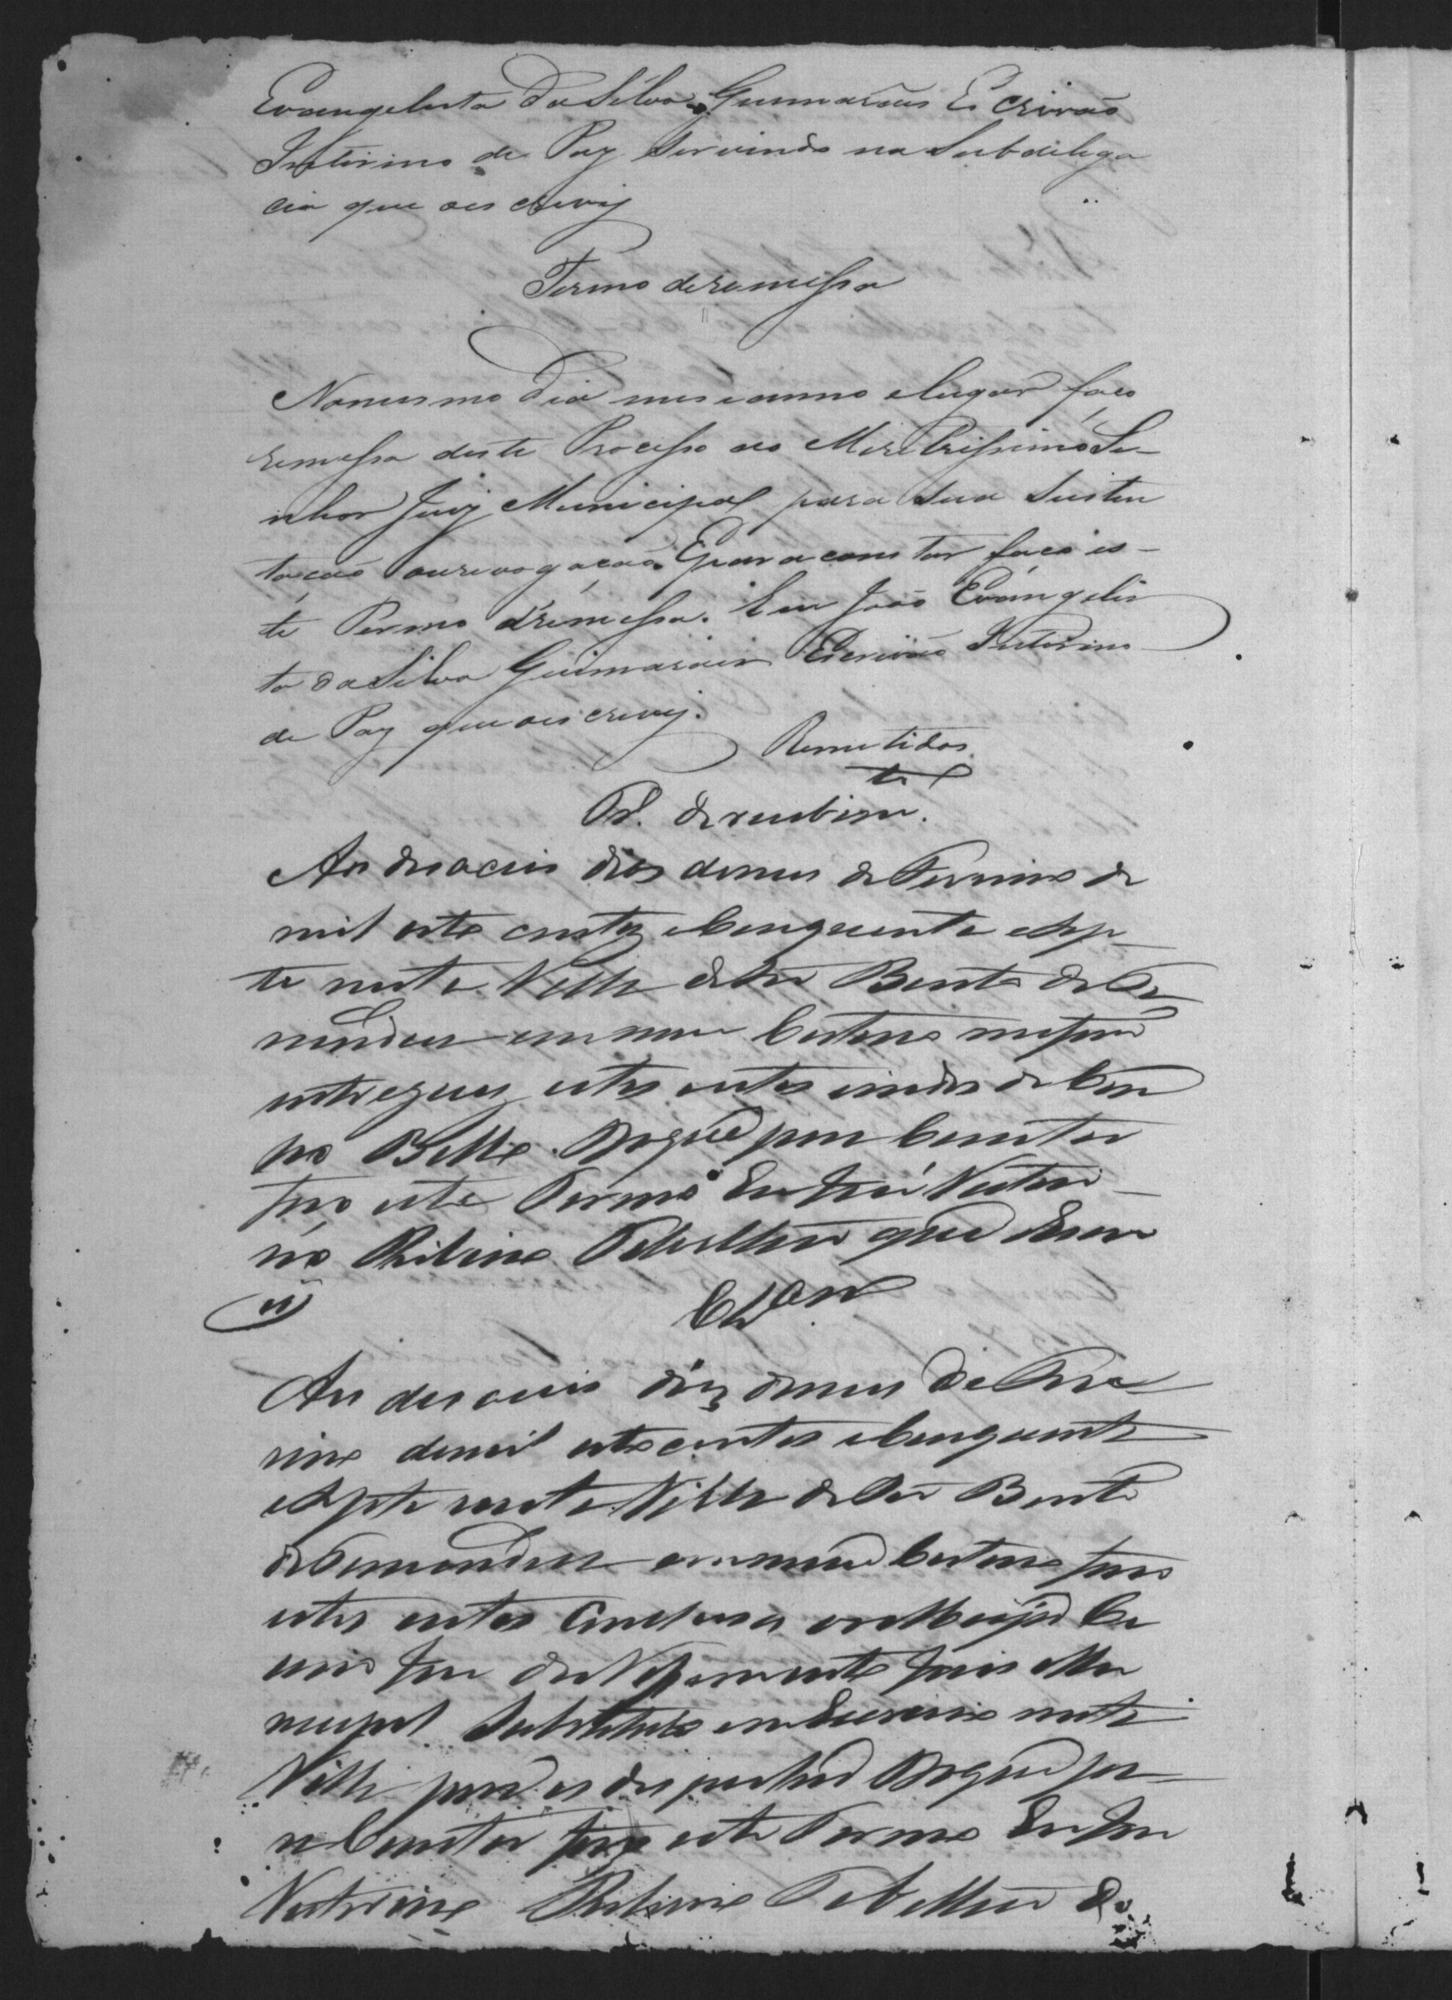 Evangelista da Silva Guimarães Escrivão
Interino de Paz servindo na Subdelega
cia que oescrevy
Termo deremessa
Nomesmo dia mes eanno elugar faço
remessa deste Processo ao Meretrissimo Se-
nhor Juiz Municipal para sua susten
tacão ourevogacão. Epara constar faço es-
te Termo d'remessa. Eeu João Evangelis
ta da Silva Guimarães Escrivão Interino
de Paz que oescrevy.
Remetidos
Aos desaceis dias domes de
mil oito centos ecinquenta esep
te nesta Villa de São Bento de Ta
mandua em meu Cartorio
entregues estes autos vindos de Cam
po Bello. Doque para Constar
faço este Termo Eu José Victori
no Ribeiro Tabelliam que Escre
vi
Clsam
Aos desaceis dias domes de
demil oito centos ecinquenta
esepte nesta Villa de São Bento
de Tamandua em meu Cartorio faço
estes autos Conclusos
Juis Mu
nicipal Substituto em Exercicio nesta
Villa para os despachar Doque pa
ra Constar faço este Termo Eu José
Victorino Ribeiro Tabelliam